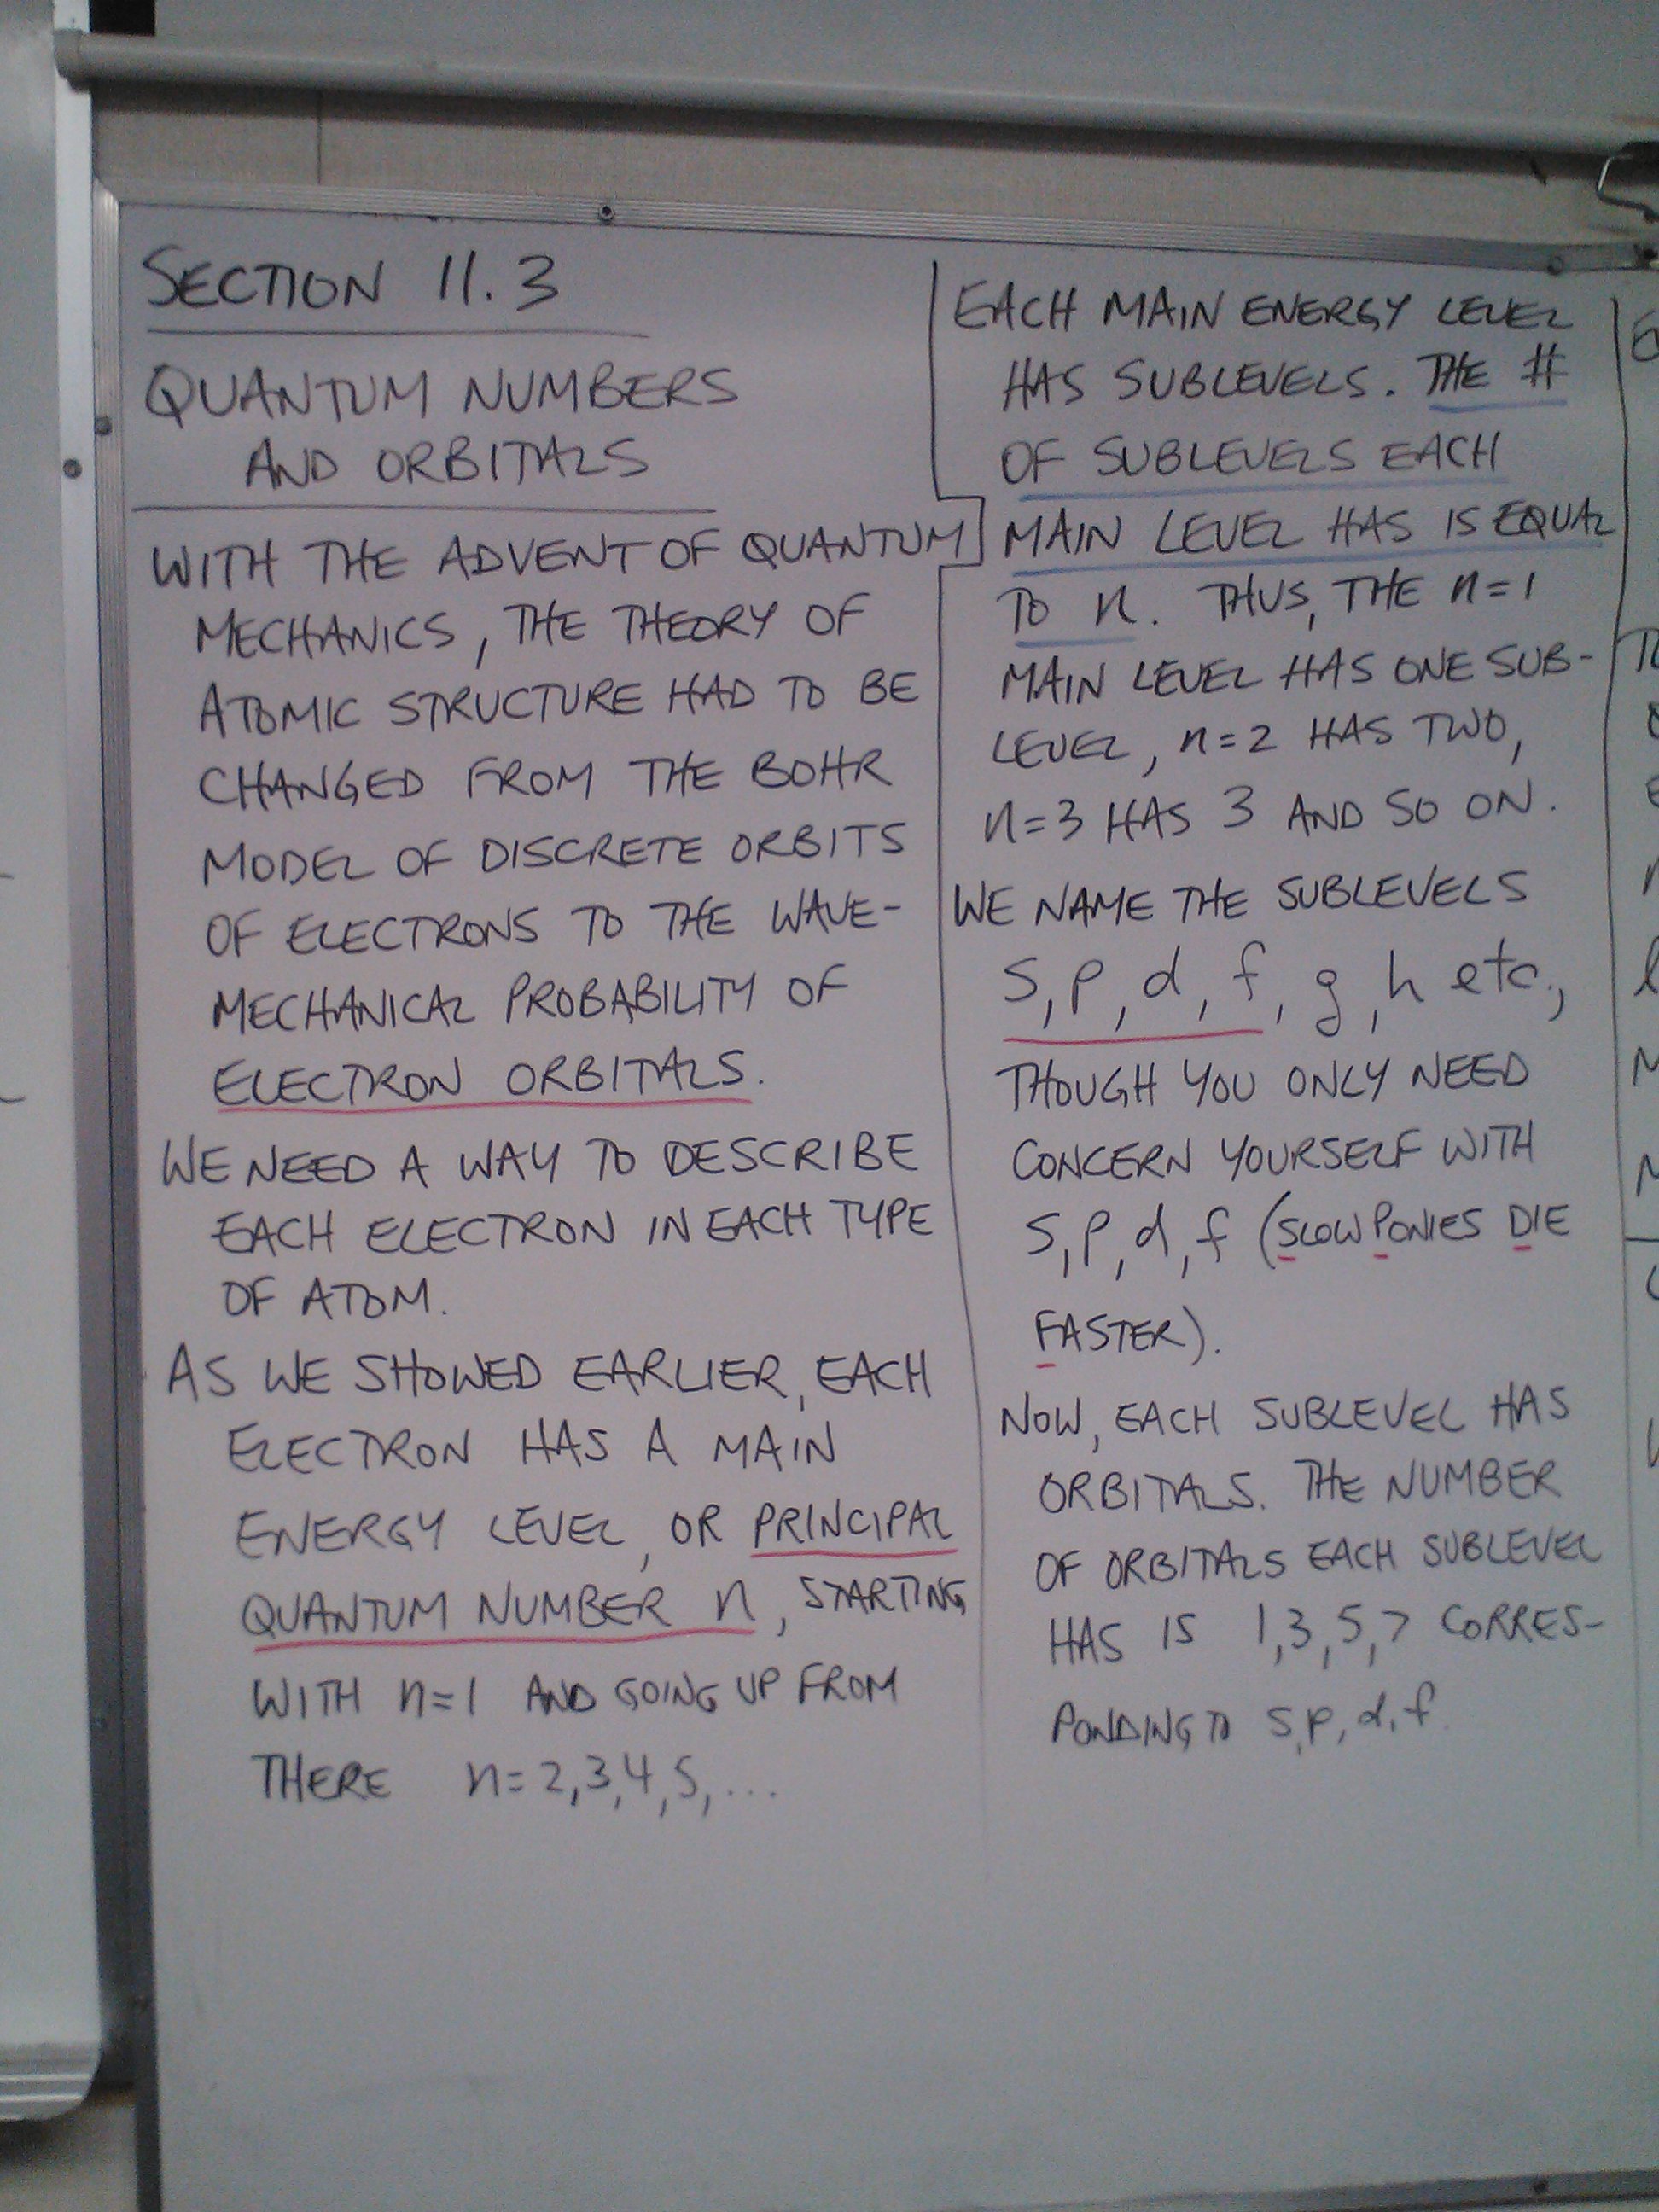 SECTION 11.3
QUANTUM NUMBERS
AND ORBITALS
WITH THE ADVENT OF QUANTUM
MECHANICS, THE THEORY OF
ATOMIC STRUCTURE HAD TO BE
CHANGED FROM THE BOHR
MODEL OF DISCRETE ORBITS
OF ELECTRONS TO THE WAVE-
MECHANICAL PROBABILITY OF
ELECTRON ORBITALS.
WE NEED A WAY TO DESCRIBE
EACH ELECTRON IN EACH TYPE
OF ATOM.
AS WE SHOWED EARLIER, EACH
ELECTRON HAS A MAIN
ENERGY LEVEL, OR PRINCIPAL
QUANTUM NUMBER n, STARTING
WITH n=1 AND GOING UP FROM
THERE n=2,3,4,5,...
EACH MAIN ENERGY LEVEL
HAS SUBLEVELS. THE #
OF SUBLEVELS EACH
MAIN LEVEL HAS IS EQUAL
TO n. THUS, THE n=1
MAIN LEVEL HAS ONE SUB-
LEVEL, n=2 HAS TWO,
n=3 HAS 3 AND SO ON.
WE NAME THE SUBLEVELS
s, p, d, f, g, h etc.,
THOUGH YOU ONLY NEED
CONCERN YOURSELF WITH
s, p, d, f (SLOW PONIES DIE
FASTER).
NOW, EACH SUBLEVEL HAS
ORBITALS. THE NUMBER
OF ORBITALS EACH SUBLEVEL
HAS IS 1,3,5,7 CORRES-
PONDING TO s,p,d,f.